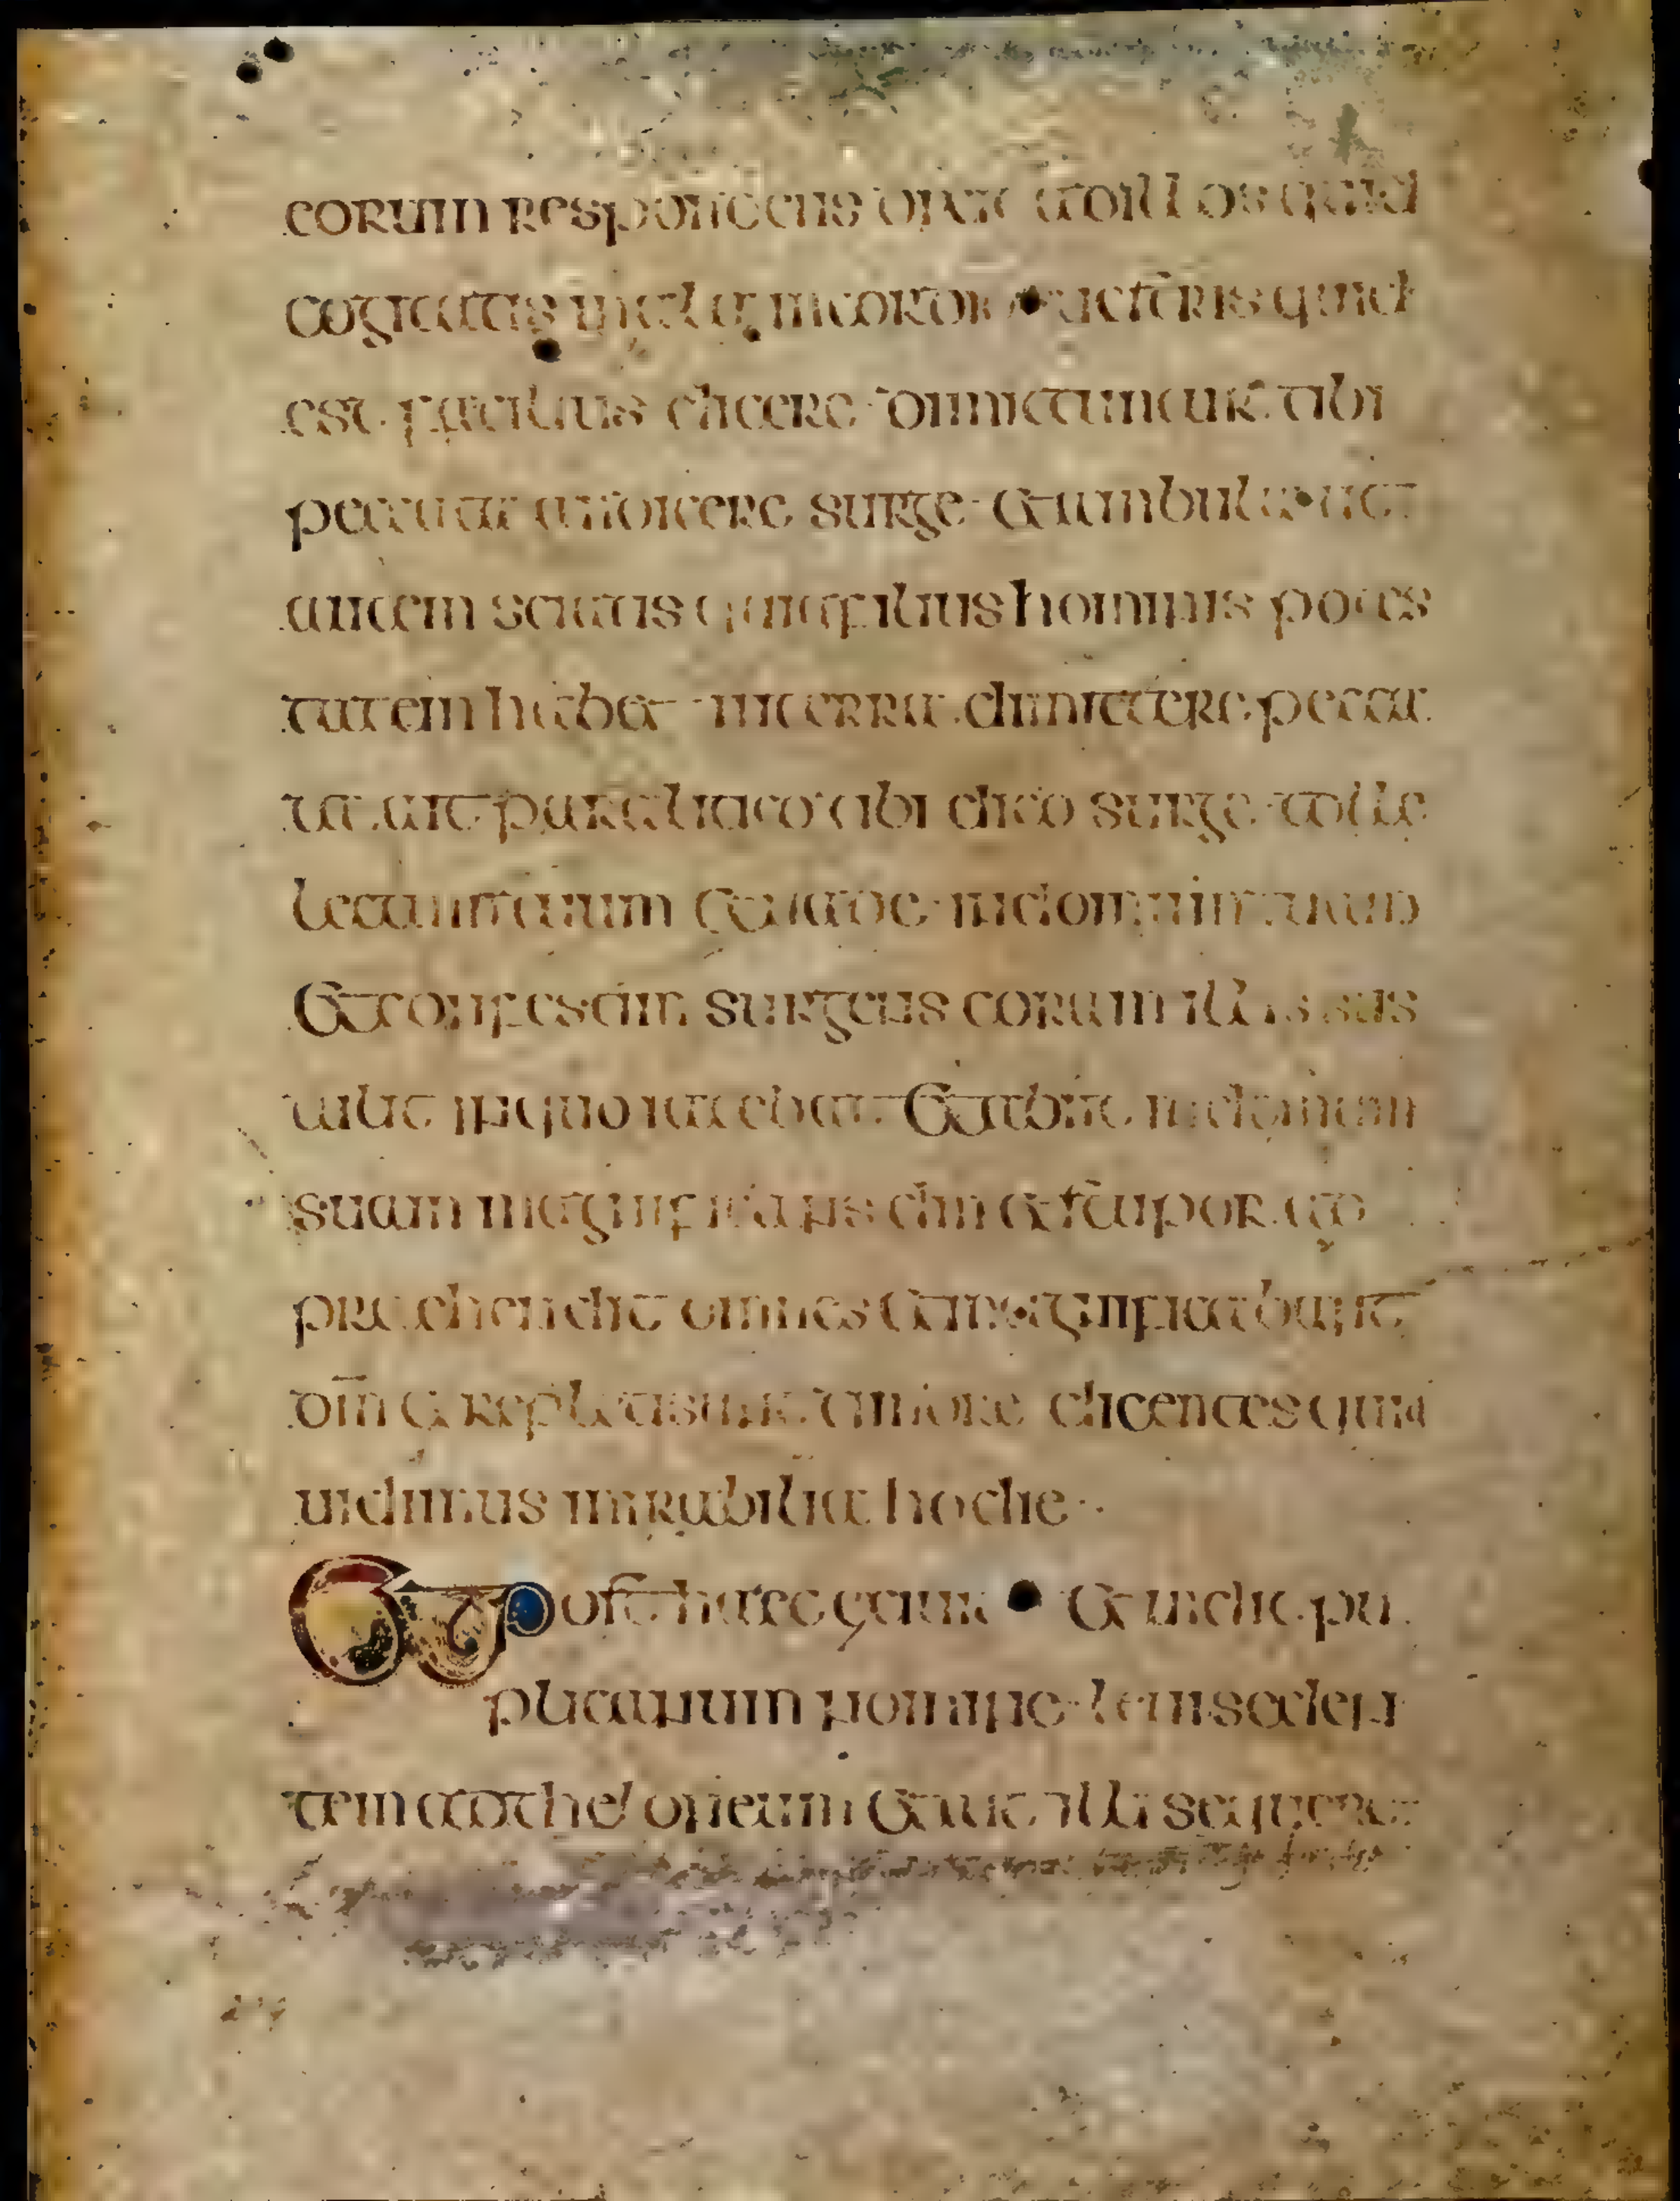 eorum respondens dixit ad illos quid
cogitatis mala in cordibus uestris quid
est facilius dicere dimittuntur tibi
peccata an dicere surge et ambula ut
autem sciatis quia filius hominis potes
tatem habet in terra dimittere pecca
ta ait paralitico tibi dico surge tolle
lectum tuum et uade in domum tuam
Et confestim surgens coram illis tus
tulit in quo iacebat Et abiit in domum
suam magnificans dm et stupor ap
praehendit omnes et magnificabant
dm et repleti sunt timore dicentes quia
uidimus mirabilia hodie
Et post haec exiit Et uidit pu
plicanum nomine leui seden
tem ad theloneum et ait illi sequere